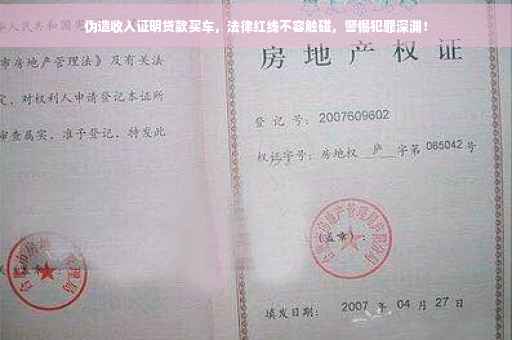 伪造收入证明贷款买车，法律红线不容触碰，警惕犯罪深渊！
华人民共和国宪
市房地产管理法》及有关法
定，对权利人申请登记本证所
审查属实，准予登记，特发此
房地产权证
登记号：2007609602
权证字号：房地权 庐 字第 065042 号
(盖章)：
填发日期：2007 年 04 月 27 日